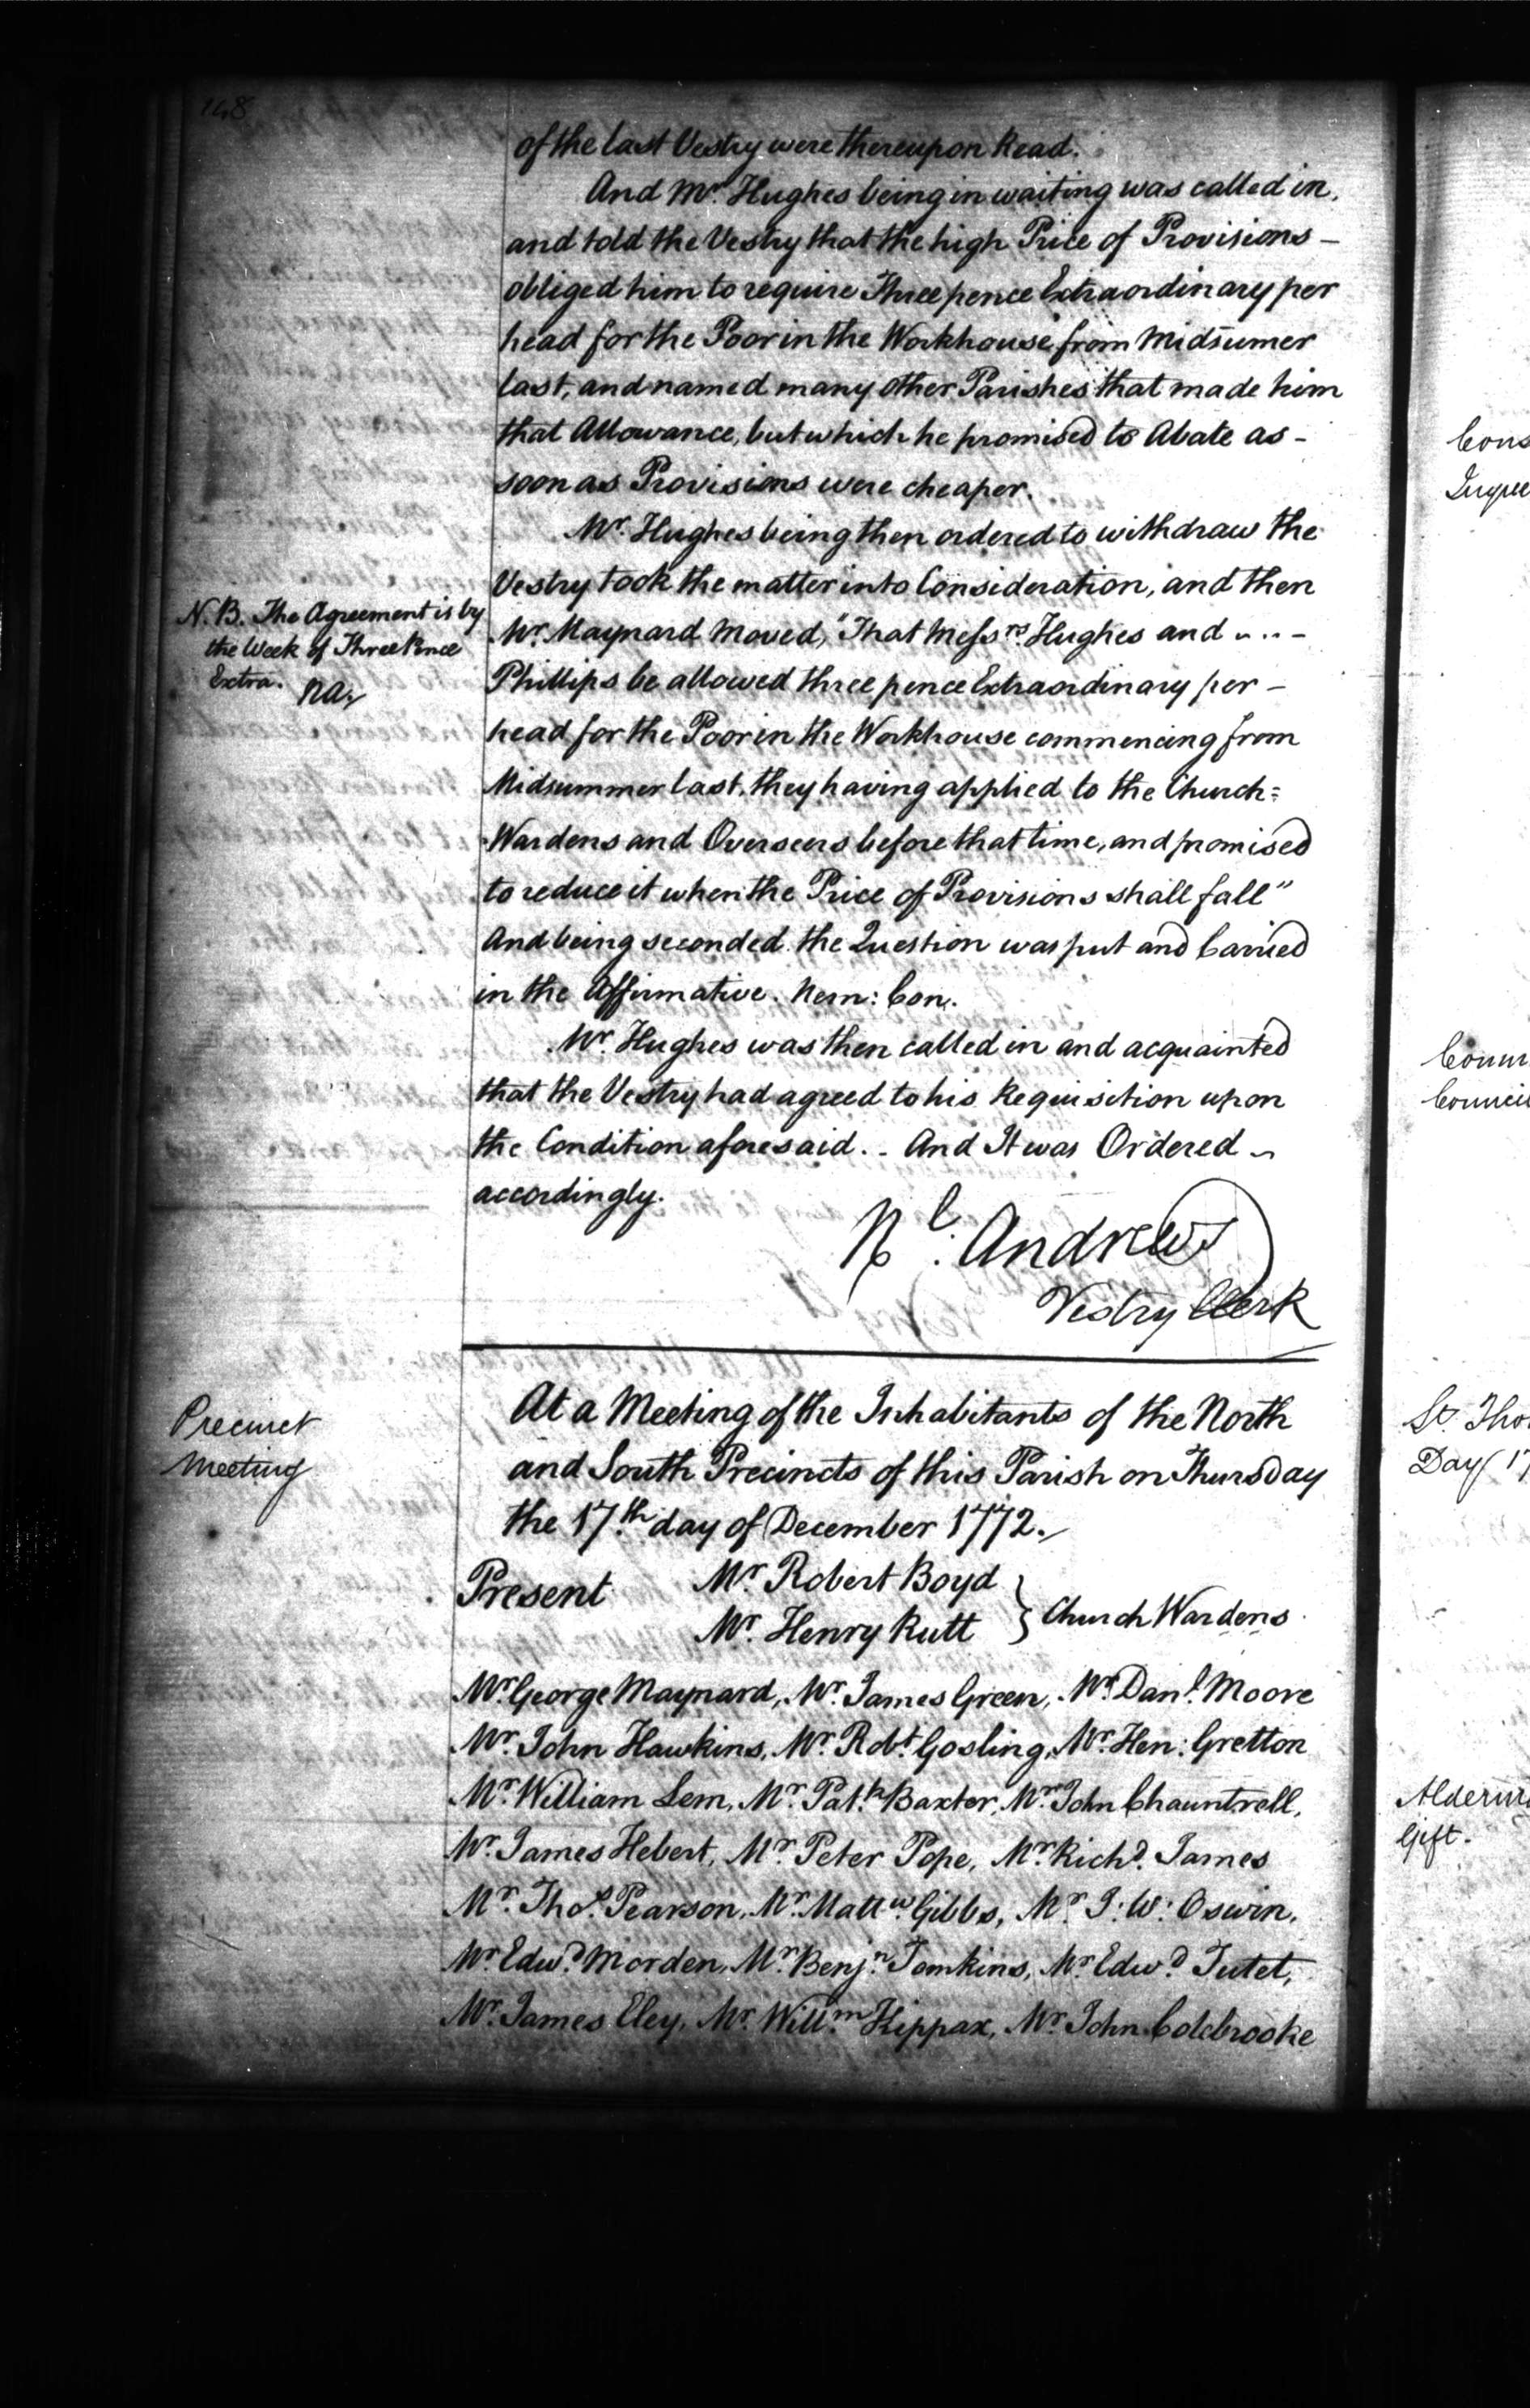 148
of the last Vestry were thereupon Read.
And Mr. Hughes being in waiting was called in,
and told the Vestry that the high Price of Provisions –
obliged him to require Three pence Extraordinary per
head for the Poor in the Workhouse from Midsumer
last, and named many other Parishes that made him
that Allowance, but which he promised to Abate as –
soon as Provisions were cheaper.
Mr. Hughes being then ordered to withdraw the
Vestry took the matter into Consideration, and then
N.B. The Agreement is by
the Week of Three Pence
Extra. NA.
Mr. Maynard Moved, "That Messrs. Hughes and –
Phillips be allowed three pence Extraordinary per –
head for the Poor in the Workhouse commencing from
Midsummer last, they having applied to the Church=
Wardens and Overseers before that time, and promised
to reduce it when the Price of Provisions shall fall"
And being seconded the Question was put and Carried
in the Affirmative. Nem: Con.
Mr. Hughes was then called in and acquainted
that the Vestry had agreed to his Requisition upon
the Condition aforesaid. – And It was Ordered –
accordingly.
Nl. Andrews
Vestry Clerk
Precinct
Meeting
At a Meeting of the Inhabitants of the North
and South Precincts of this Parish on Thursday
the 17.th day of December 1772.
Present
Mr. Robert Boyd
Mr. Henry Rutt
} Church Wardens
Mr. George Maynard, Mr. James Green, Mr. Danl. Moore
Mr. John Hawkins, Mr. Robt. Gosling, Mr. Hen: Gretton
Mr. William Lem, Mr. Patk. Baxter, Mr. John Chauntrell,
Mr. James Hebert, Mr. Peter Pope, Mr. Richd. James
Mr. Thos. Pearson, Mr. Mattw. Gibbs, Mr. J: W: Oswin,
Mr. Edwd. Morden, Mr. Benjn. Tomkins, Mr. Edwd. Tutet,
Mr. James Eley, Mr. Willm. Kippax, Mr. John Colebrooke
Cons
Comm
Council
St. Tho
Day 17
Alderm
Gift.